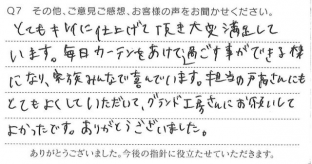 Q7 その他、ご意見ご感想、お客様の声をお聞かせください。
とてもキレイに仕上げて頂き大変満足して
います。毎日カーテンをあけて過ごす事ができる様
になり、家族みんなで喜んでいます。担当の戸高さんにも
とてもよくしていただいて、グランド工房さんにお願いして
よかったです。ありがとうございました。
ありがとうございました。今後の指針に役立たせていただきます。